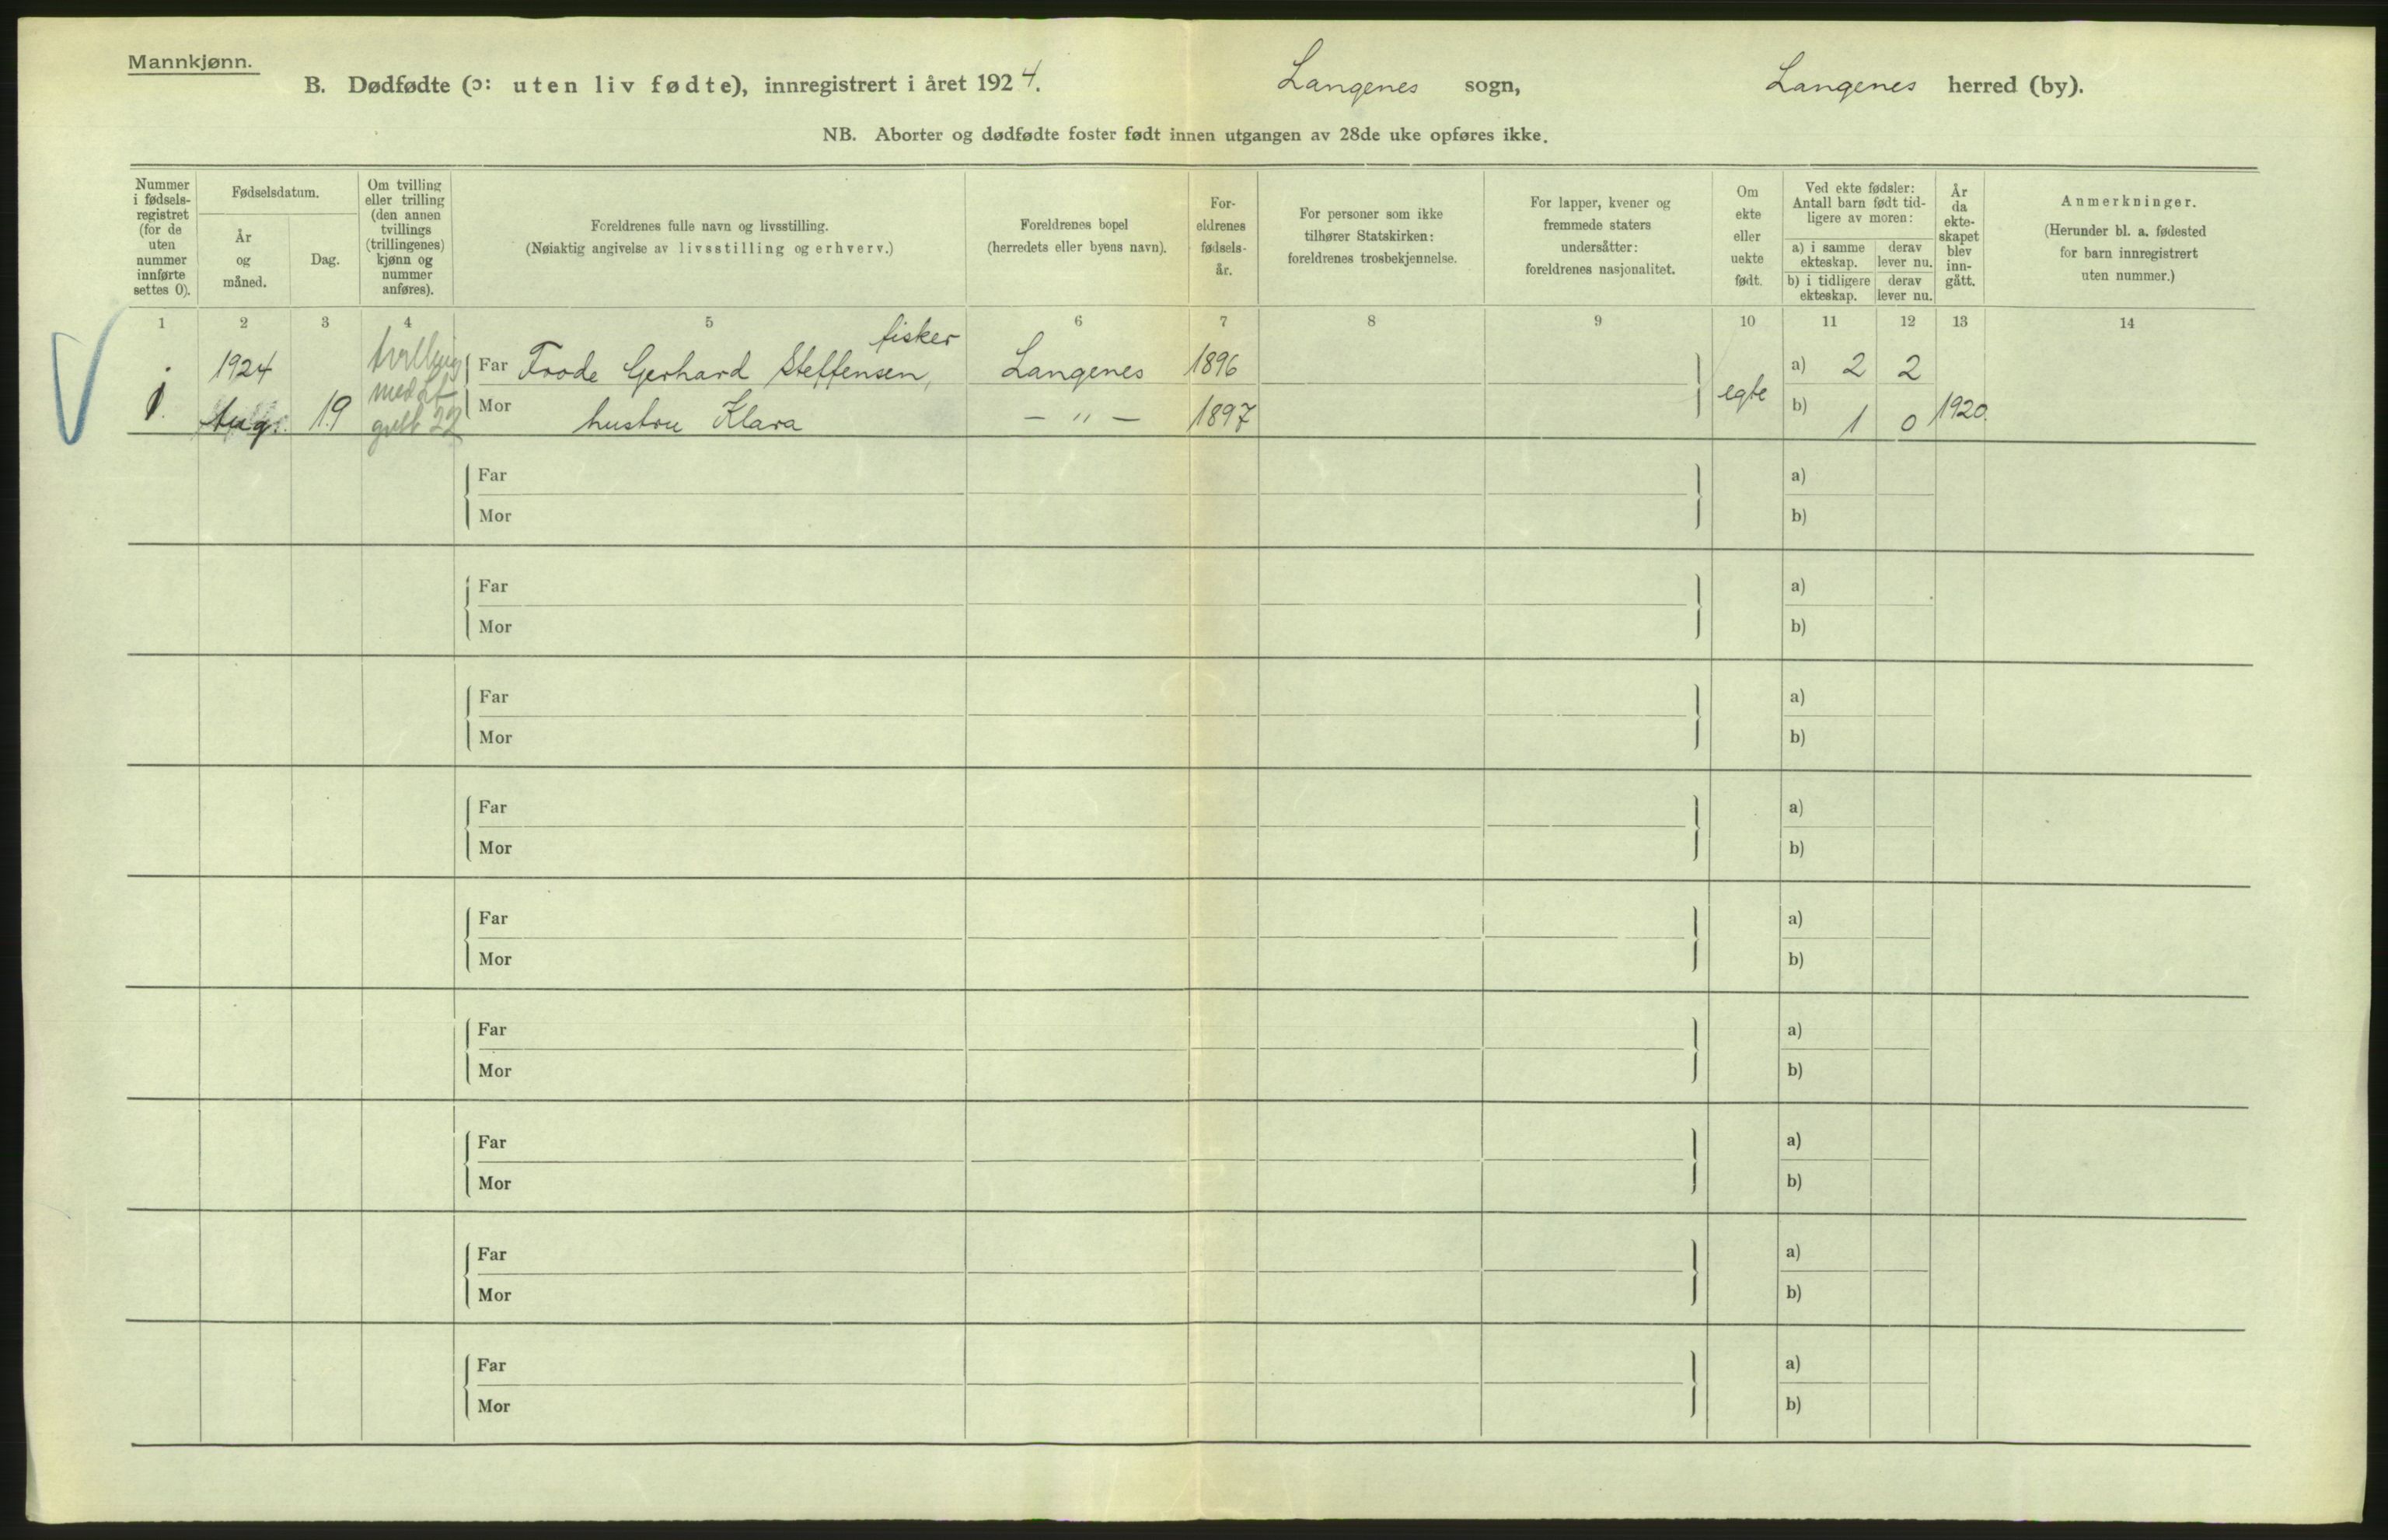 Mannkjønn.
B. Dødfødte (ɔ: uten liv fødte), innregistrert i året 1924. Langenes sogn, Langenes herred (by).
NB. Aborter og dødfødte foster født innen utgangen av 28de uke opføres ikke.
Nummer i fødsels-registret (for de uten nummer innførte settes 0).
Fødselsdatum.
År og måned.
Dag.
Om tvilling eller trilling (den annen tvillings (trillingenes) kjønn og nummer anføres).
Foreldrenes fulle navn og livsstilling.
(Nøiaktig angivelse av livsstilling og erhverv.)
Foreldrenes bopel
(herredets eller byens navn).
For-eldrenes fødsels-år.
For personer som ikke tilhører Statskirken: foreldrenes trosbekjennelse.
For lapper, kvener og fremmede staters undersåtter: foreldrenes nasjonalitet.
Om ekte eller uekte født.
Ved ekte fødsler: Antall barn født tid-ligere av moren:
a) i samme ekteskap.
derav lever nu.
b) i tidligere ekteskap.
derav lever nu.
År da ekte-skapet blev inn-gått.
Anmerkninger.
(Herunder bl. a. fødested for barn innregistrert uten nummer.)
1 2 3 4 5 6 7 8 9 10 11 12 13 14
fisker
1924 Far Frode Gerhard Steffensen, Langenes 1896 a) 2 2
1. Aug. 19 22 Mor hustru Klara — " — 1897 egte b) 1 0 1920.
Far a)
Mor b)
Far a)
Mor b)
Far a)
Mor b)
Far a)
Mor b)
Far a)
Mor b)
Far a)
Mor b)
Far a)
Mor b)
Far a)
Mor b)
Far a)
Mor b)